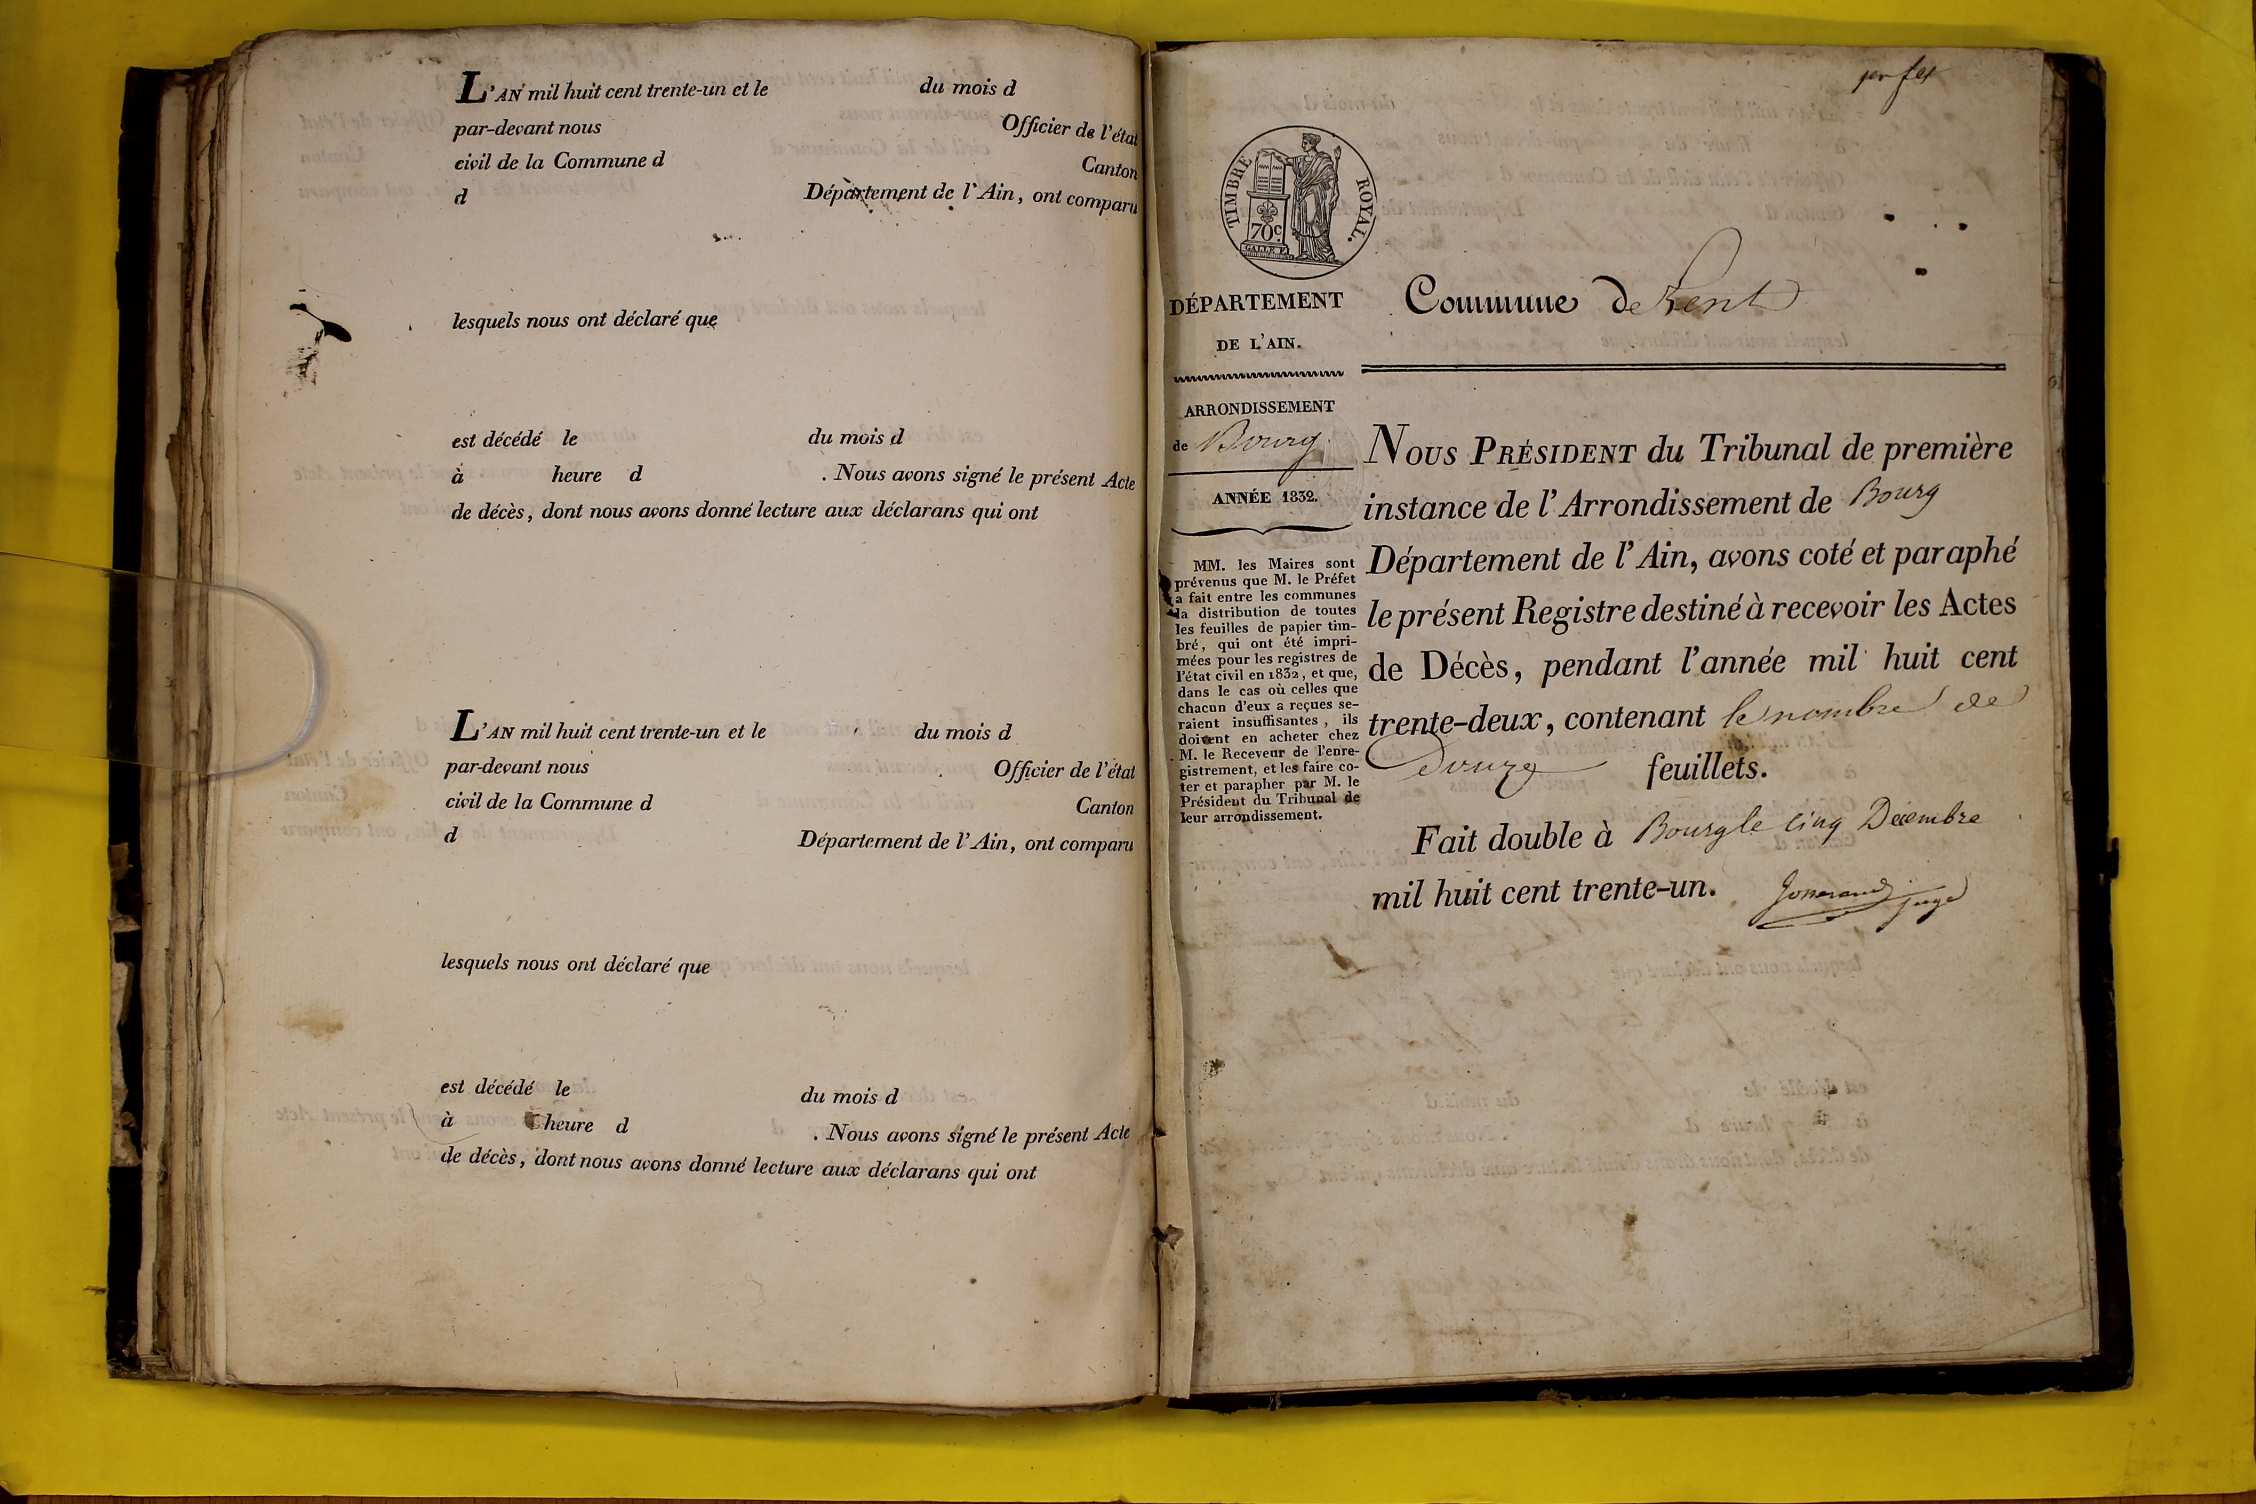 L'AN mil huit cent trente-un et le du mois d
par-devant nous Officier de l'état
civil de la Commune d Canton
d Département de l'Ain, ont comparu
lesquels nous ont déclaré que
est décédé le du mois d
à heure d . Nous avons signé le présent Acte
de décès, dont nous avons donné lecture aux déclarans qui ont
L'AN mil huit cent trente-un et le du mois d
par-devant nous Officier de l'état
civil de la Commune d Canton
d Département de l'Ain, ont comparu
lesquels nous ont déclaré que
est décédé le du mois d
à heure d . Nous avons signé le présent Acte
de décès, dont nous avons donné lecture aux déclarans qui ont
TIMBRE ROYAL.
70c.
GALLE F.
DÉPARTEMENT
DE L'AIN.
ARRONDISSEMENT
de Bourg
ANNÉE 1832.
MM. les Maires sont
prévenus que M. le Préfet
a fait entre les communes
la distribution de toutes
les feuilles de papier tim-
bré, qui ont été impri-
mées pour les registres de
l'état civil en 1832, et que,
dans le cas où celles que
chacun d'eux a reçues se-
raient insuffisantes, ils
doivent en acheter chez
M. le Receveur de l'enre-
gistrement, et les faire co-
ter et parapher par M. le
Président du Tribunal de
leur arrondissement.
Commune de Lent
NOUS PRÉSIDENT du Tribunal de première
instance de l'Arrondissement de Bourg
Département de l'Ain, avons coté et paraphé
le présent Registre destiné à recevoir les Actes
de Décès, pendant l'année mil huit cent
trente-deux, contenant le nombre de
Douze feuillets.
Fait double à Bourg le cinq Décembre
mil huit cent trente-un.
juge